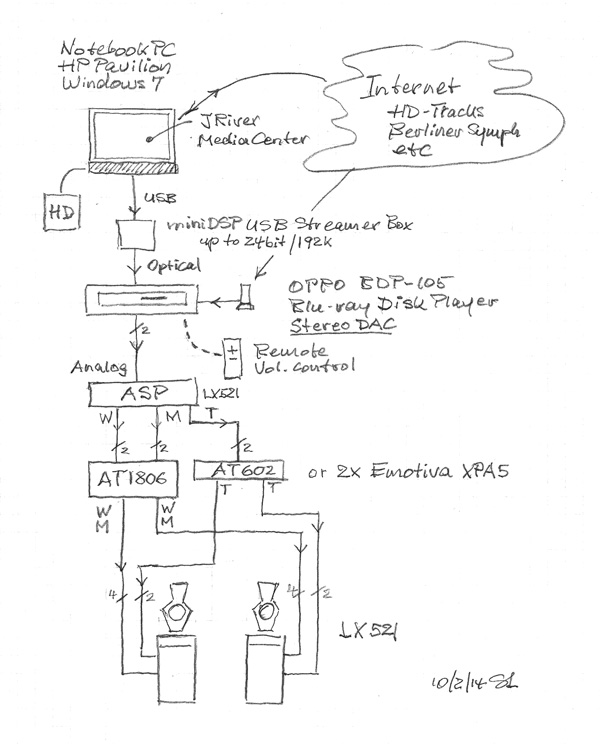 Notebook PC
HP Pavilion
Windows 7
JRiver
Media Center
Internet
HD-Tracks
Berliner Symph
etc
HD
USB
miniDSP USB Streamer Box
up to 24bit/192k
Optical
OPPO BDP-105
Blu-ray Disk Player
Stereo DAC
2
±
Remote
Vol. control
Analog
ASP
LX521
W
M
T
2
2
2
AT1806
AT602
or 2x Emotiva XPA5
W
M
W
M
T
T
4
2
4
2
LX521
10/2/14 SL